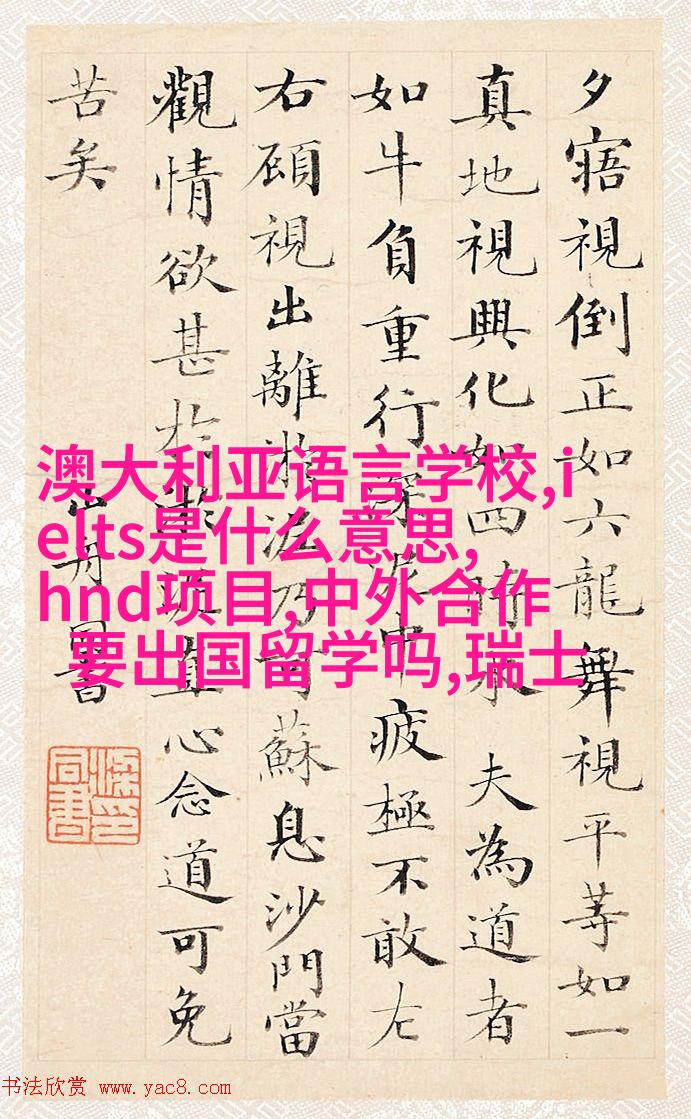 夕寤視倒正如六龍舞視平等如一
真地視興化如四時木夫為道者
如牛負重行深泥中疲極不敢左
右顧視出離淤泥乃可蘇息沙門當
觀情欲甚於淤泥直心念道可免
苦矣
山舟同書
梁同書印
澳大利亚语言学校,i
elts是什么意思,
hnd项目,中外合作
要出国留学吗,瑞士
书法欣赏 www.yac8.com